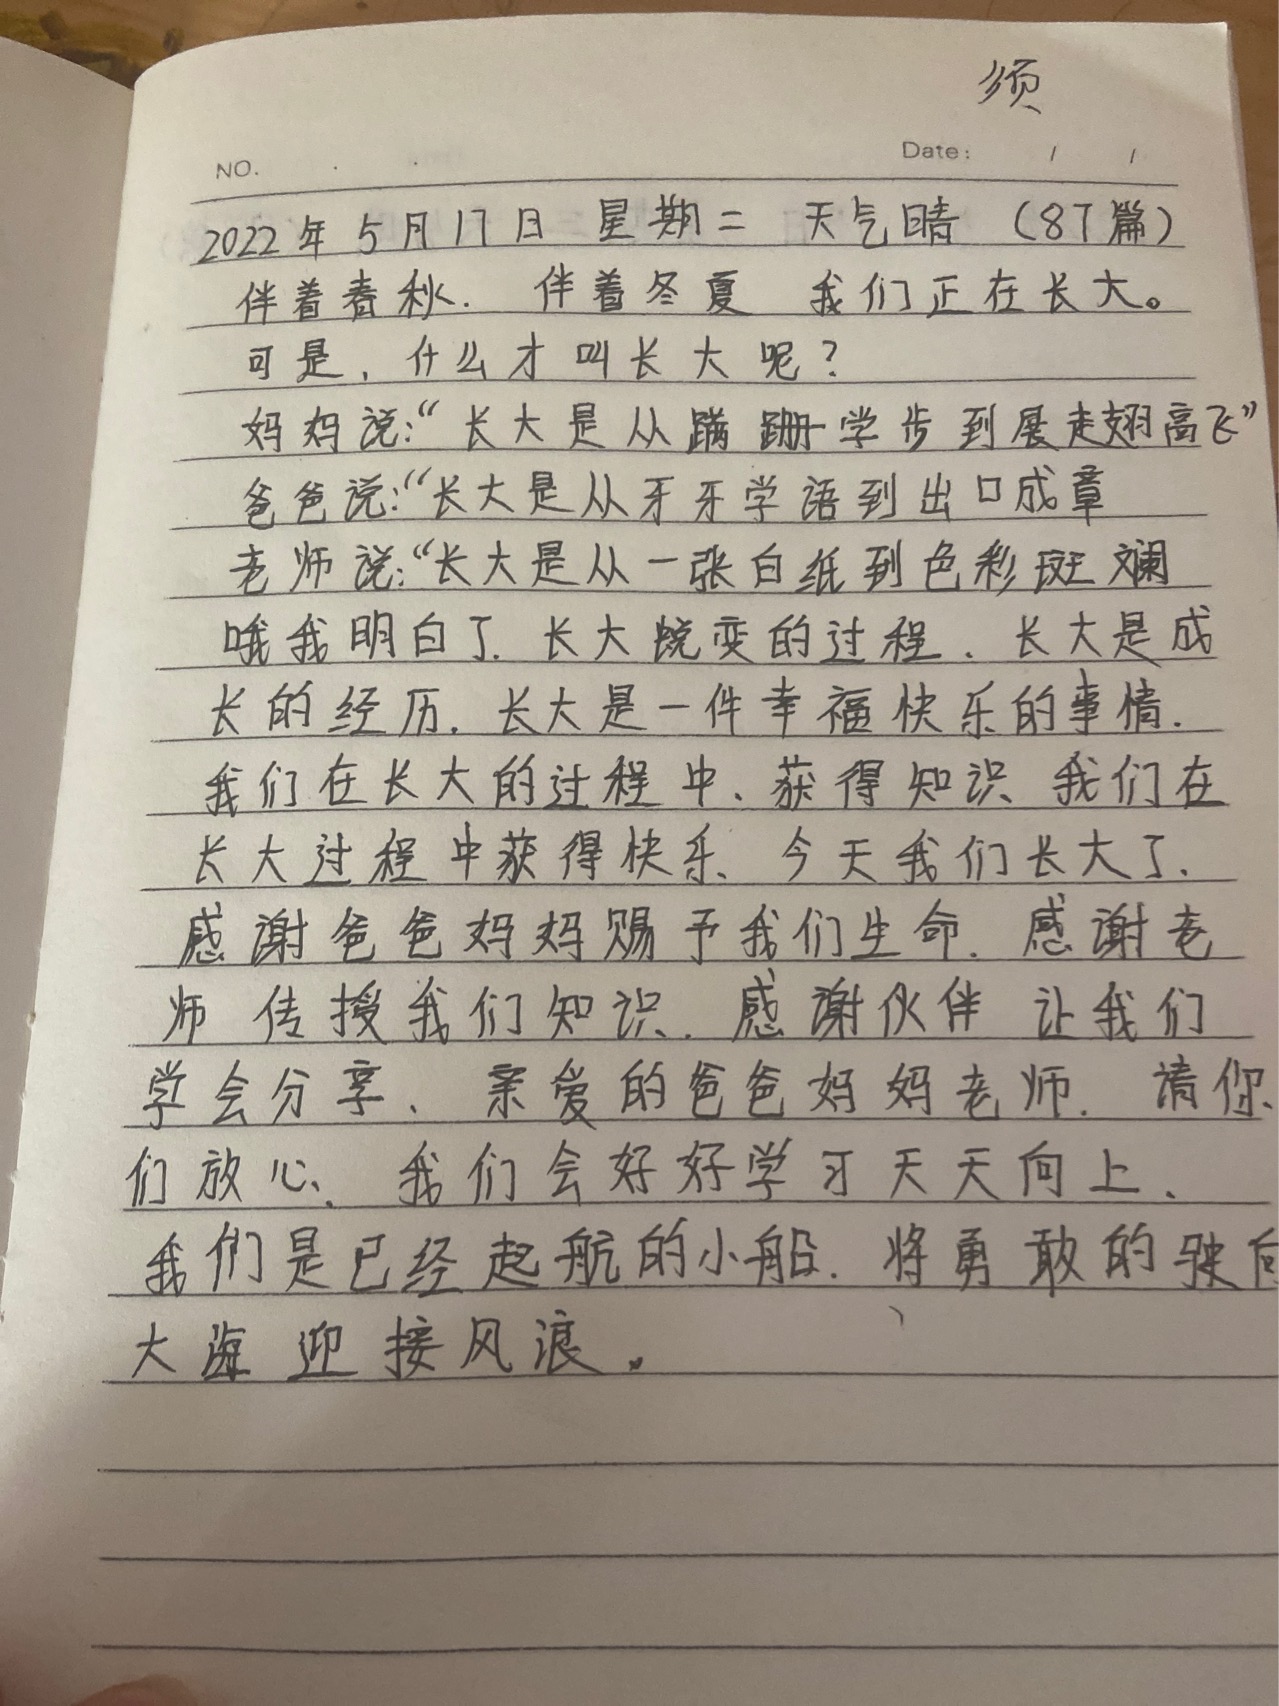 须
NO.
Date: / /
2022年5月17日 星期二 天气晴 (87篇)
伴着春秋. 伴着冬夏 我们正在长大。
可是、什么才叫长大呢?
妈妈说:“长大是从蹒跚学步到展走翅高飞”
爸爸说:“长大是从牙牙学语到出口成章
老师说:“长大是从一张白纸到色彩斑斓
哦我明白了. 长大蜕变的过程. 长大是成
长的经历. 长大是一件幸福快乐的事情.
我们在长大的过程中、获得知识、我们在
长大过程中获得快乐、今天我们长大了.
感谢爸爸妈妈赐予我们生命. 感谢老
师 传授我们知识. 感谢伙伴 让我们
学会分享、亲爱的爸爸妈妈老师. 请你
们放心、我们会好好学习天天向上、
我们是已经起航的小船. 将勇敢的驶向
大海 迎接风浪。